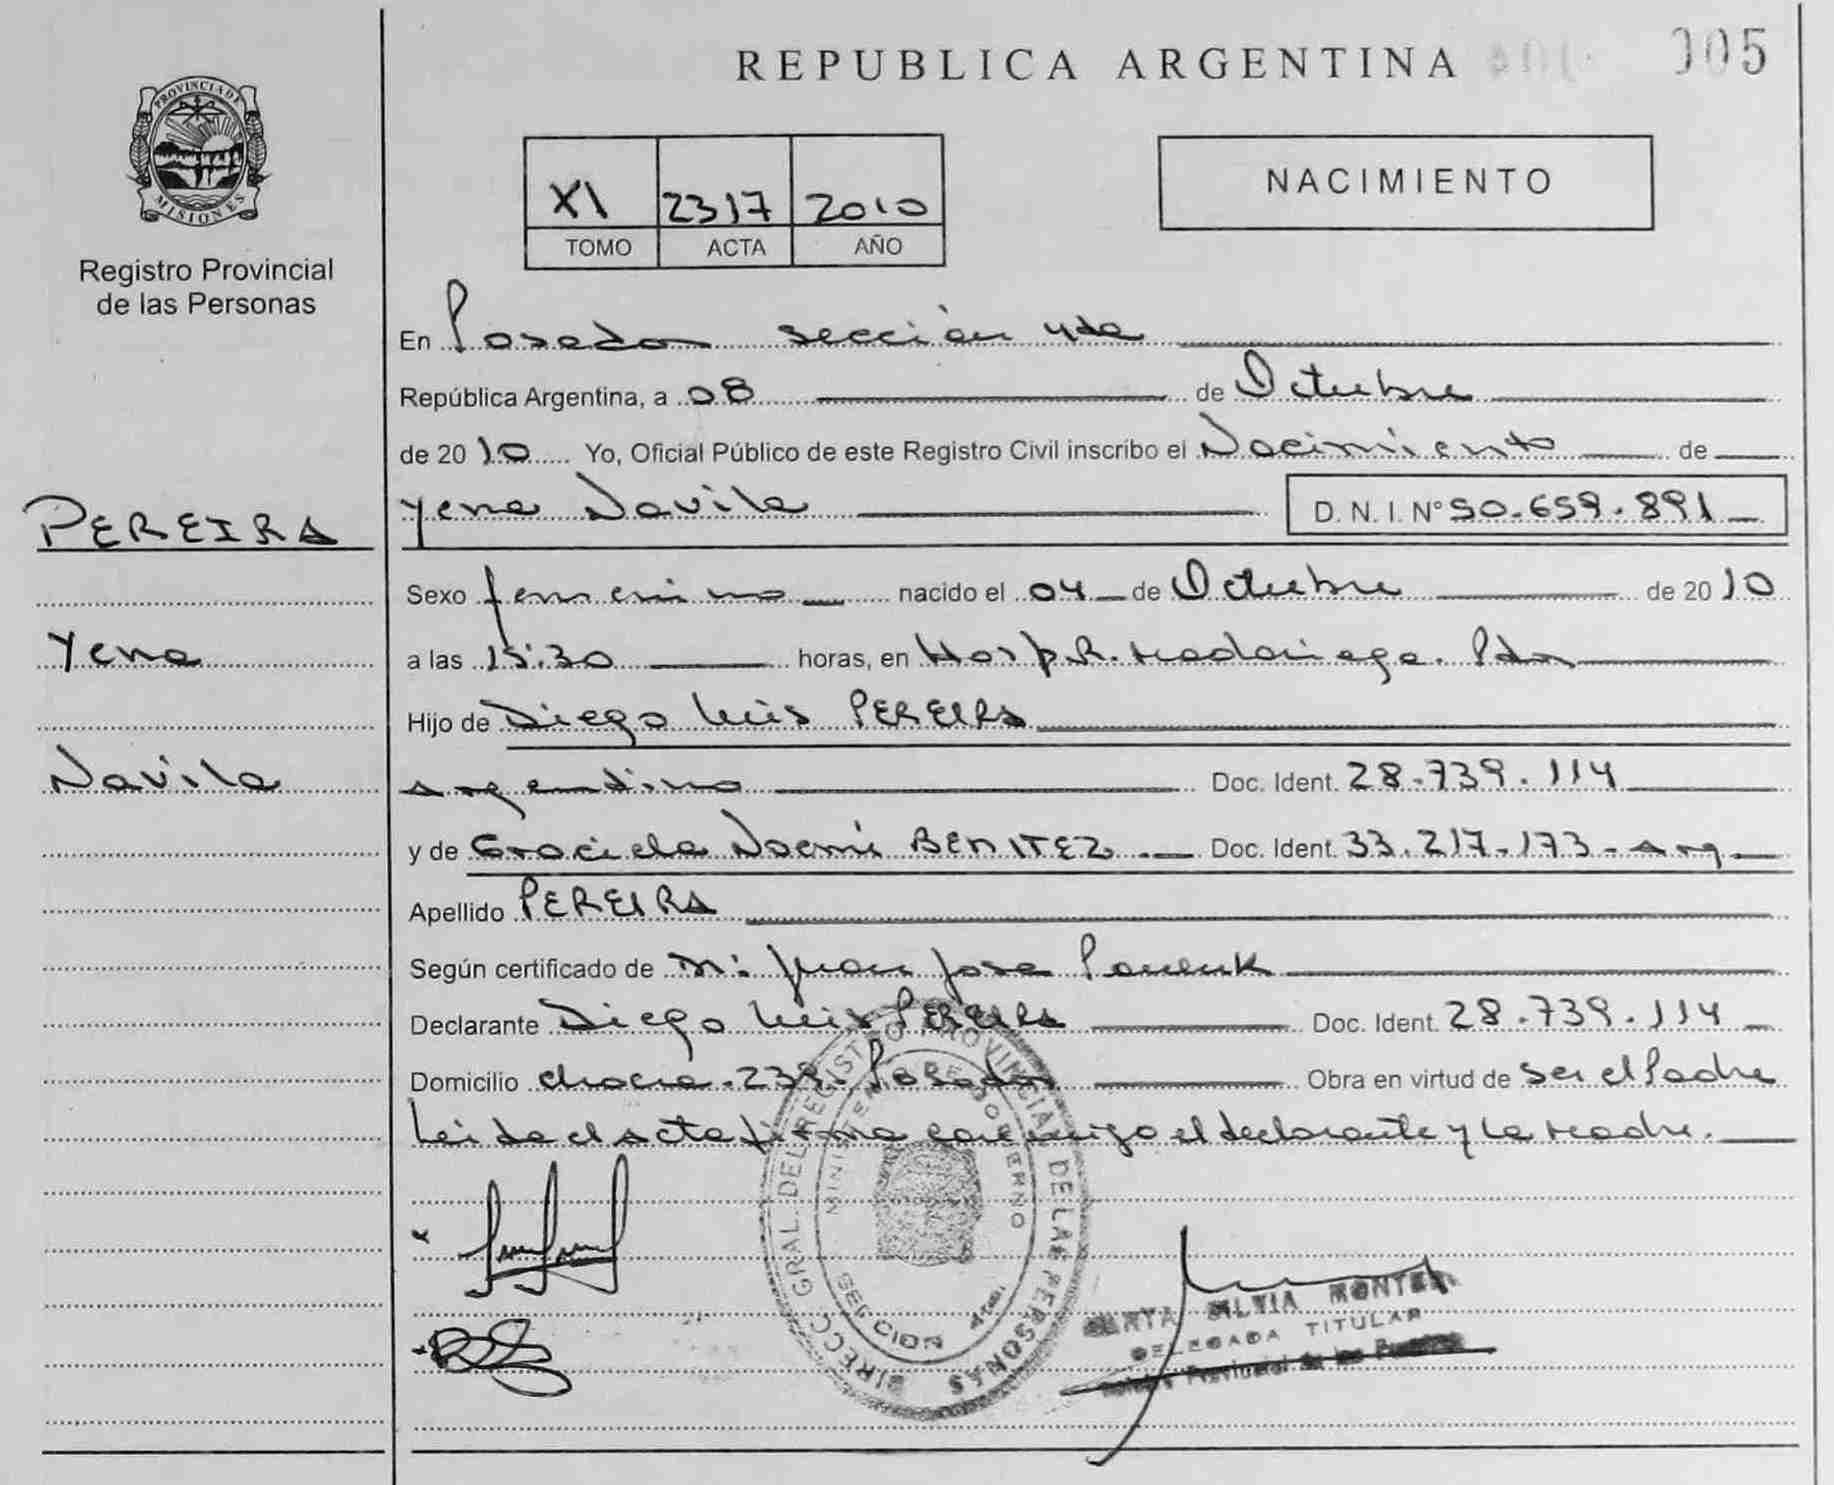 REPUBLICA ARGENTINA
005
PROVINCIA DE MISIONES
Registro Provincial
de las Personas
XI 2317 2010
TOMO ACTA AÑO
NACIMIENTO
En Posadas sección 4ta
República Argentina, a 08 de Octubre
de 2010 Yo, Oficial Público de este Registro Civil inscribo el Nacimiento de
PEREIRA
Yena Navila D.N.I. Nº 50.659.891
Sexo femenino nacido el 04 de Octubre de 2010
Yena
a las 15:30 horas, en Hosp. R. Madariaga. Pdas
Hijo de Diego Luis PEREIRA
Navila
argentino Doc. Ident. 28.739.114
y de Graciela Noemí BENITEZ Doc. Ident. 33.217.173 - arg.
Apellido PEREIRA
Según certificado de Juan José
Declarante Diego Luis PEREIRA Doc. Ident. 28.739.114
Domicilio chacra 239. Posadas Obra en virtud de ser el Padre
Leida el acta firma conmigo el declarante y la madre.
DIRECC. GRAL. DEL REGISTRO PROVINCIAL DE LAS PERSONAS
MINISTERIO DE GOBIERNO
SECCION 4ta.
SILVIA
DELEGADA TITULAR
Provincial de las Personas